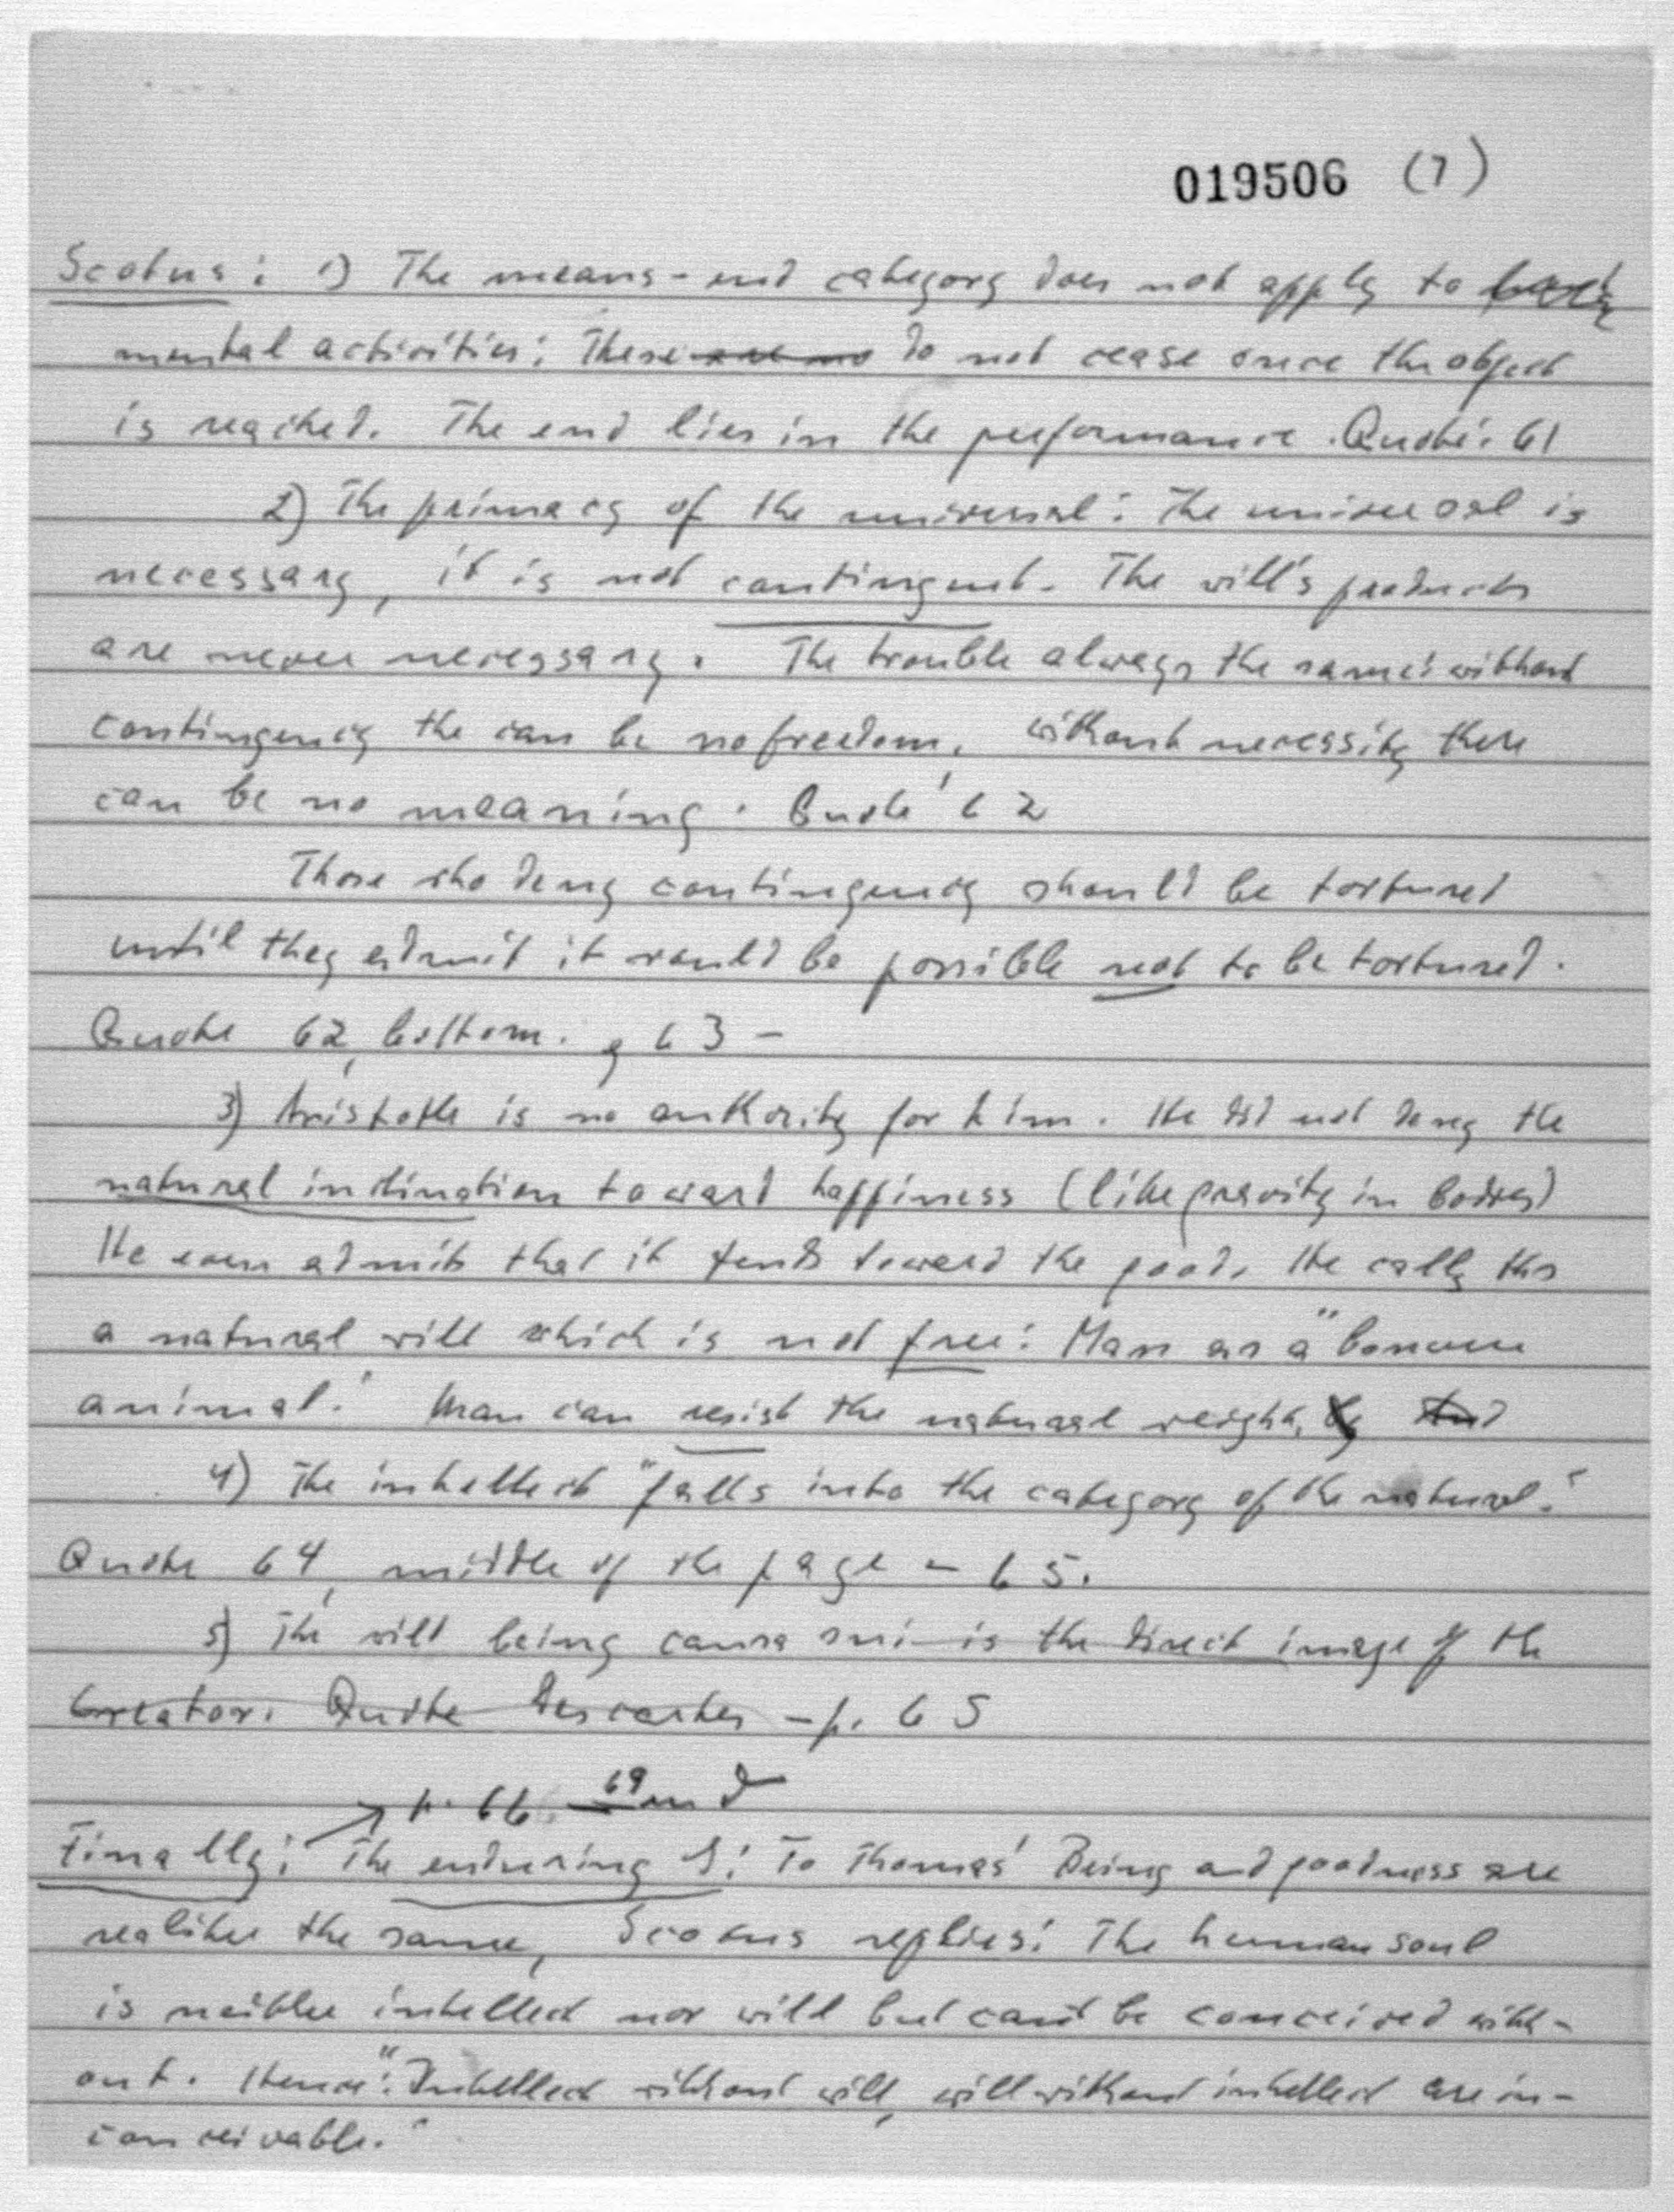 019506 (7)
Scotus: 1) The means-end category does not apply to
mental activities: These are no do not cease once the object
is reached. The end lies in the performance. Quote: 61
2) The primacy of the universal: The universal is
necessary, it is not contingent. The will's products
are never necessary. The trouble always the same: without
contingency the can be no freedom, without necessity there
can be no meaning. Quote 62
Those who deny contingency should be tortured
until they admit it would be possible not to be tortured.
Quote 62, bottom. 63 -
3) Aristotle is no authority for him. He did not deny the
natural inclination toward happiness (like gravity in bodies)
He even admits that it tends toward the good. He calls this
a natural will which is not free: Man as a "bonum
animal." Man can resist the natural weight, by And
4) The intellect "falls into the category of the natural."
Quote 64, middle of the page - 65.
5) The will being causa sui is the direct image of the
Creator. Quote Descartes - p. 65
p. 66 69
Finally: The enduring I: To Thomas' Being and goodness are
realiter the same, Scotus replies: The human soul
is neither intellect nor will but can't be conceived with-
out. Hence: "Intellect without will, will without intellect are in-
conceivable."